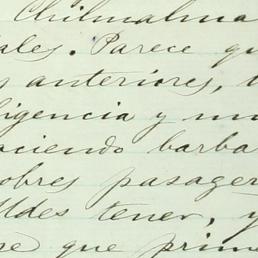 Chilmalma
ales. Parece qu
s anteriores, 
ligencia y mu
aciendo barba
obres pasager
ldes tener, y
re que prime